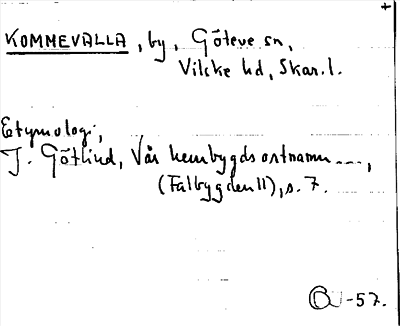 +
KOMMEVALLA, by, Göteve sn,
Vilske hd, Skar. l.
Etymologi;
J. Götlind, Vår hembygds ortnamn ...,
(Falbygden II), s. 7.
-57.